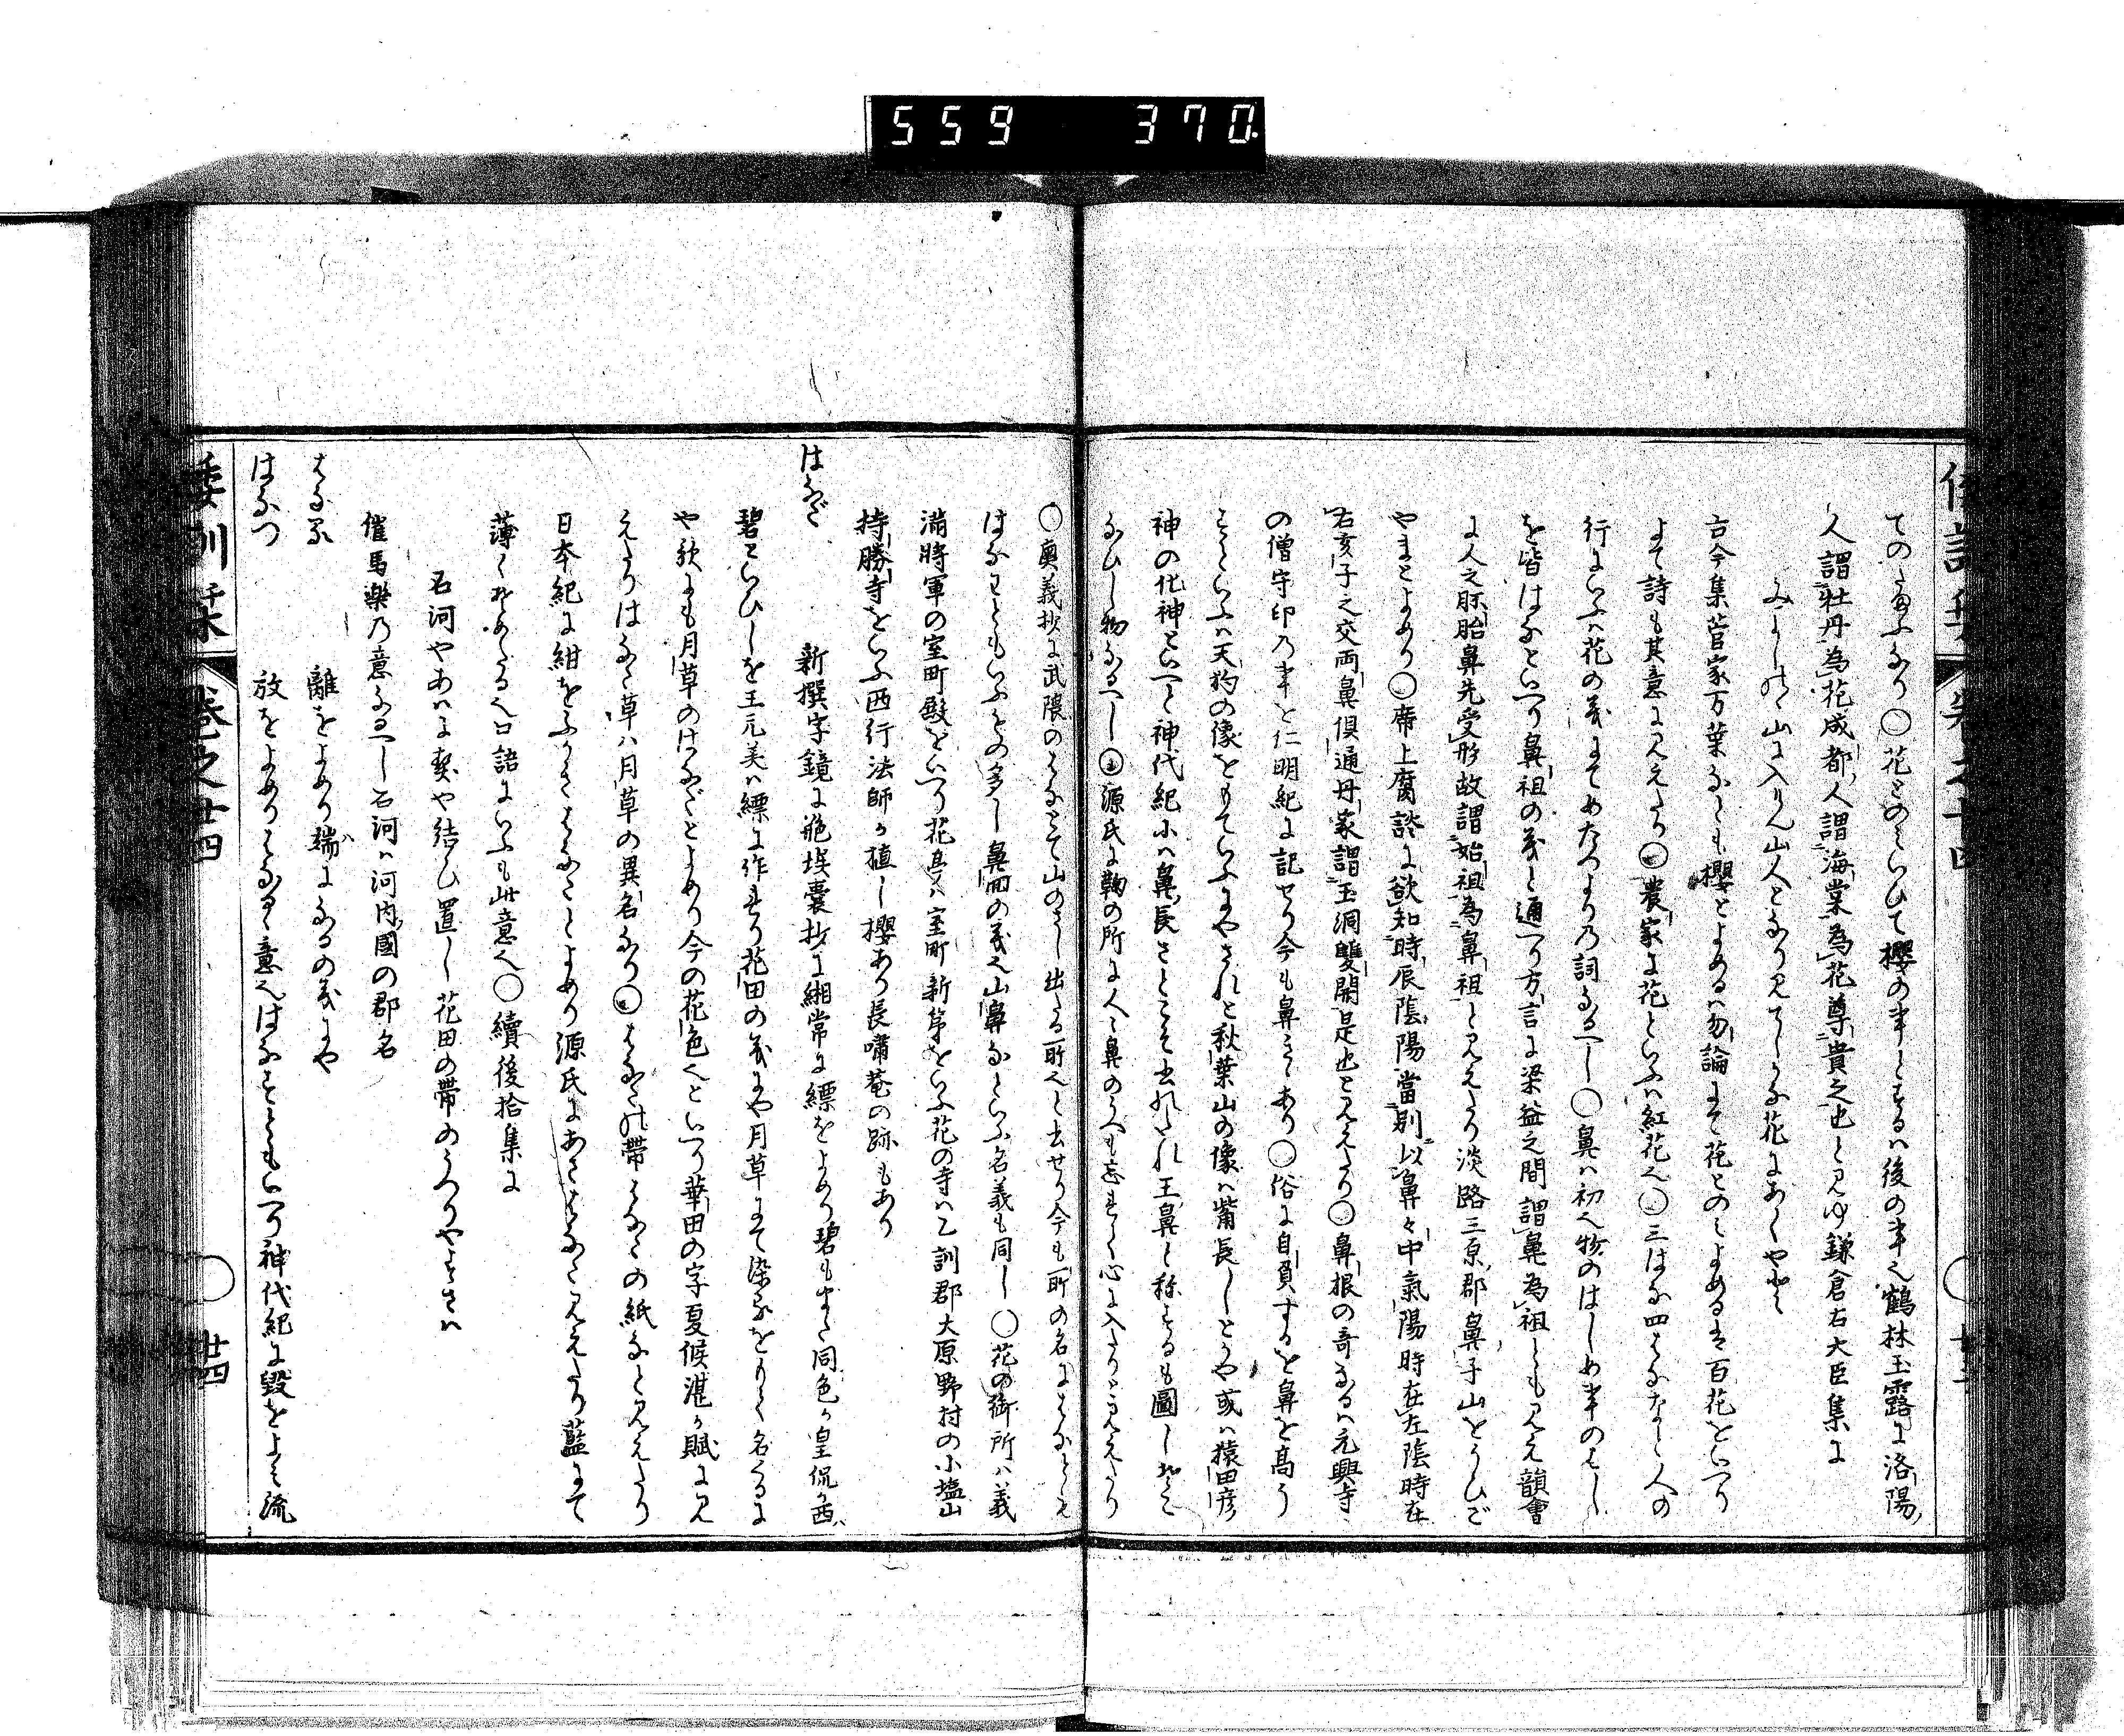 559 370
てのたまふなり〇花とのミいひて櫻の事とするハ後の事也鶴林玉露に洛陽
人謂牡丹為花成都人謂海棠為花尊貴之也と見ゆ鎌倉右大臣集に
みよしのゝ山に入けん山人となり見てしかな花にあくやと
古今集菅家万葉なとも櫻とよめるハ勿論にて花とのミよめるは百花をいへり
よて詩も其意に見えたり
農家に花といふハ紅花也〇三はな四はななと人の
行にいふハ花の義にてめたつよりの詞なるへし〇鼻ハ初也物のはしめ事のはし
を皆はなといへり鼻祖の義と通へり方言に梁益之間謂鼻為祖とも見え韻會
に人之胚胎鼻先受形故謂始祖為鼻祖と見えたり淡路三原郡鼻子山をうひご
やまとよめり〇席上腐談に欲知時辰陰陽當別以鼻々中氣陽時在左陰時在
右亥子之交兩鼻俱通丹家謂玉洞雙開是也と見えたり〇鼻根の哥なるハ元興寺
の僧守印の事と仁明紀に記せり今も鼻きゝあり〇俗に自負するを鼻を高う
すといふハ天狗の像をもていふにやされと秋葉山の像ハ觜長しとそや或ハ猿田彦
神の化神といへと神代紀にハ鼻長さとこそ出れされ王鼻と称するも圖し
なひし物なるへし
源氏に鞠の所に人々鼻のうへも忘れて心に入たりと見えたり
〇奥義抄に武隈のはなとて山のさし出たる所也と出せり今も所の名にはなといふ
はなわともいふもの多し鼻曲の義也山鼻なといふ名義も同し〇花の御所ハ義
滿將軍の室町殿をいへり花亭ハ室町新第をいふ花の寺ハ乙訓郡大原野村の小塩山
持勝寺をいふ西行法師か植し櫻あり長嘯菴の跡もあり
はなだ 新撰字鏡に絁埃囊抄に緗常に縹をよめり碧もまた同色か皇侃か西ハ
碧といひしを王元美ハ縹に作れり花田の義にや月草にて染るをもて名くるに
や歌にも月草のはなだとよめり今の花色也といへり華田の字夏候湛か賦に見
えたりはなた草ハ月草の異名なり
はなたの帶はなたの紙なと見えたり
日本紀に紺をふかきはなたとよめり源氏にあさはなた見えたり藍にて
薄くそめたる也口語にいふも此意也〇續後拾集に
石河やあハに契や結ひ置し花田の帶のうつりやすさハ
催馬樂の意なるへし石河ハ河内國の郡名
はなる 離をよめり端になるの義にや
はなつ 放をよめりはなるゝ意也はなすともいへり神代紀に毀をよミ流
倭訓栞 卷之廿四 〇 廿四